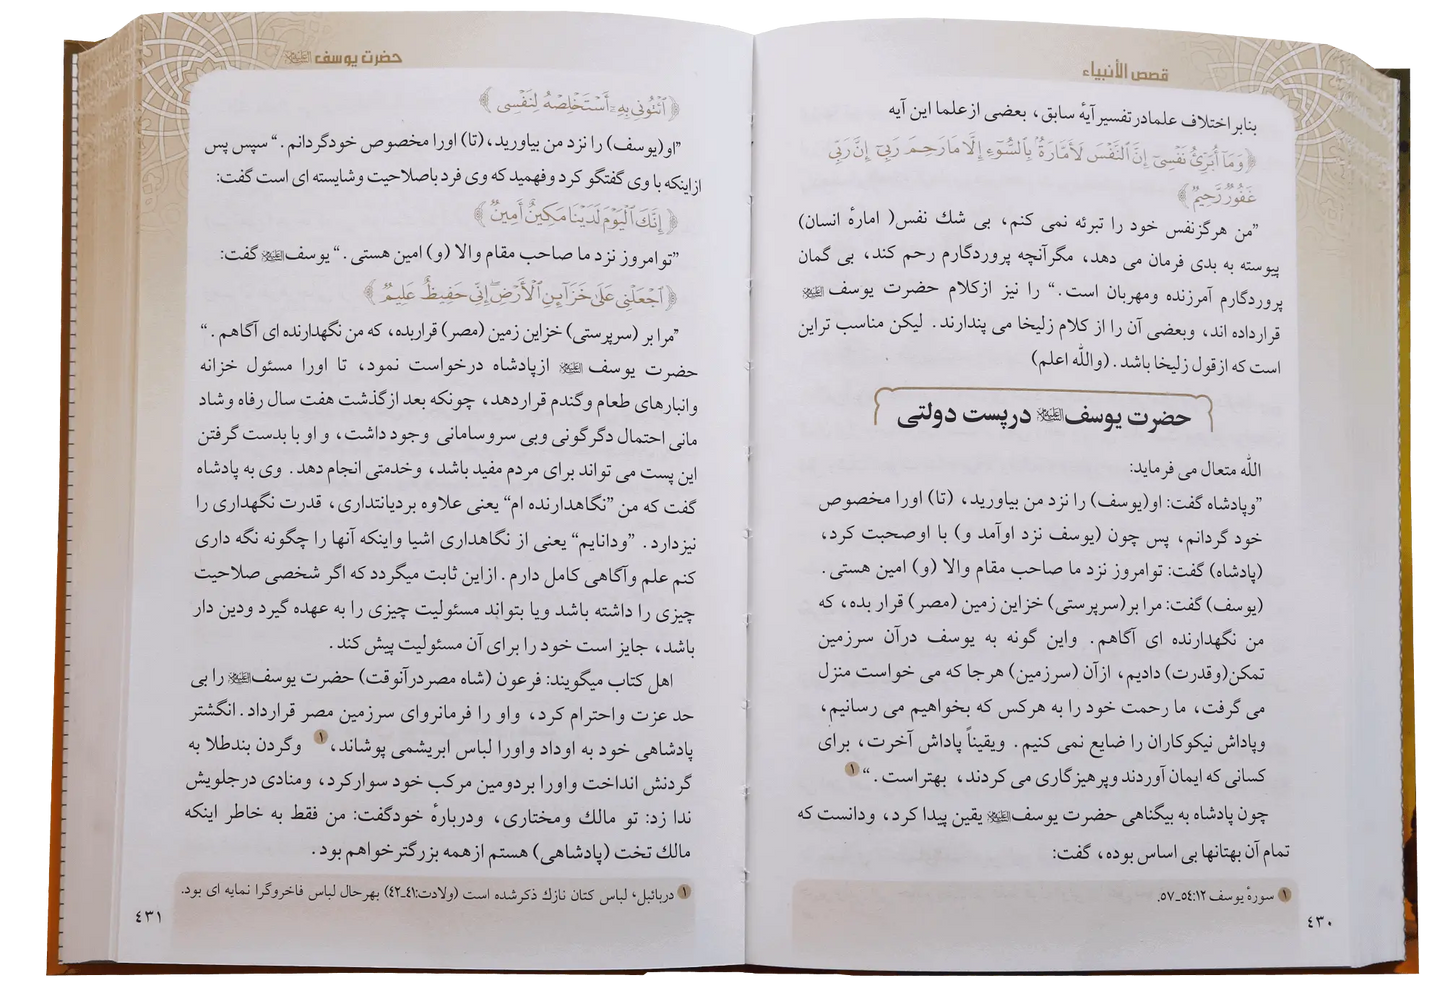 قصص الأنبیاء
بنابر اختلاف علما در تفسیر آیهٔ سابق، بعضی از علما این آیه
﴿وَمَآ أُبَرِّئُ نَفۡسِيٓ إِنَّ ٱلنَّفۡسَ لَأَمَّارَةُۢ بِٱلسُّوٓءِ إِلَّا مَا رَحِمَ رَبِّيٓ إِنَّ رَبِّي
غَفُورٞ رَّحِيمٞ﴾
”من هرگز نفس خود را تبرئه نمی کنم، بی شك نفس( امارهٔ انسان)
پیوسته به بدی فرمان می دهد، مگر آنچه پروردگارم رحم کند، بی گمان
پروردگارم آمرزنده ومهربان است.“ را نیز از کلام حضرت یوسف علیه‌السلام
قرارداده اند، وبعضی آن را از کلام زلیخا می پندارند. لیکن مناسب تر این
است که از قول زلیخا باشد. (والله اعلم)
حضرت یوسف علیه‌السلام در پست دولتی
الله متعال می فرماید:
”وپادشاه گفت: او(یوسف) را نزد من بیاورید، (تا) اورا مخصوص
خود گردانم، پس چون (یوسف نزد او آمد و) با او صحبت کرد،
(پادشاه) گفت: تو امروز نزد ما صاحب مقام والا (و) امین هستی.
(یوسف) گفت: مرا بر(سرپرستی) خزاین زمین (مصر) قرار بده، که
من نگهدارنده ای آگاهم. واین گونه به یوسف در آن سرزمین
تمکن(وقدرت) دادیم، از آن (سرزمین) هرجا که می خواست منزل
می گرفت، ما رحمت خود را به هرکس که بخواهیم می رسانیم،
وپاداش نیکوکاران را ضایع نمی کنیم. ویقیناً پاداش آخرت، برای
کسانی که ایمان آوردند وپرهیزگاری می کردند، بهتر است.“ ۱
چون پادشاه به بیگناهی حضرت یوسف علیه‌السلام یقین پیدا کرد، ودانست که
تمام آن بهتانها بی اساس بوده، گفت:
۱ سورهٔ یوسف ١٢:٥٤ـ٥٧.
٤٣٠
حضرت یوسف علیه‌السلام
﴿ٱئۡتُونِي بِهِۦٓ أَسۡتَخۡلِصۡهُ لِنَفۡسِي﴾
”او(یوسف) را نزد من بیاورید، (تا) اورا مخصوص خودگردانم.“ سپس پس
از اینکه با وی گفتگو کرد وفهمید که وی فرد باصلاحیت وشایسته ای است گفت:
﴿إِنَّكَ ٱلۡيَوۡمَ لَدَيۡنَا مَكِينٌ أَمِينٞ﴾
”تو امروز نزد ما صاحب مقام والا (و) امین هستی.“ یوسف علیه‌السلام گفت:
﴿ٱجۡعَلۡنِي عَلَىٰ خَزَآئِنِ ٱلۡأَرۡضِۖ إِنِّي حَفِيظٌ عَلِيمٞ﴾
”مرا بر (سرپرستی) خزاین زمین (مصر) قرار بده، که من نگهدارنده ای آگاهم.“
حضرت یوسف علیه‌السلام از پادشاه درخواست نمود، تا اورا مسئول خزانه
وانبارهای طعام وگندم قرار دهد، چونکه بعد از گذشت هفت سال رفاه وشاد
مانی احتمال دگرگونی وبی سروسامانی وجود داشت، و او با بدست گرفتن
این پست می تواند برای مردم مفید باشد، وخدمتی انجام دهد. وی به پادشاه
گفت که من ”نگاهدارنده ام“ یعنی علاوه بردیانتداری، قدرت نگهداری را
نیزدارد. ”ودانایم“ یعنی از نگاهداری اشیا واینکه آنها را چگونه نگه داری
کنم علم وآگاهی کامل دارم. از این ثابت میگردد که اگر شخصی صلاحیت
چیزی را داشته باشد ویا بتواند مسئولیت چیزی را به عهده گیرد ودین دار
باشد، جایز است خود را برای آن مسئولیت پیش کند.
اهل کتاب میگویند: فرعون (شاه مصر در آنوقت) حضرت یوسف علیه‌السلام را بی
حد عزت واحترام کرد، واو را فرمانروای سرزمین مصر قرارداد. انگشتر
پادشاهی خود به اوداد واورا لباس ابریشمی پوشاند، ۱ وگردن بندطلا به
گردنش انداخت واورا بر دومین مرکب خود سوار کرد، ومنادی درجلویش
ندا زد: تو مالك ومختاری، ودربارهٔ خود گفت: من فقط به خاطر اینکه
مالك تخت (پادشاهی) هستم از همه بزرگترخواهم بود.
۱ در بائبل، لباس کتان نازك ذکر شده است (ولادت:٤١ـ٤٢) بهرحال لباس فاخروگرا نمایه ای بود.
٤٣١